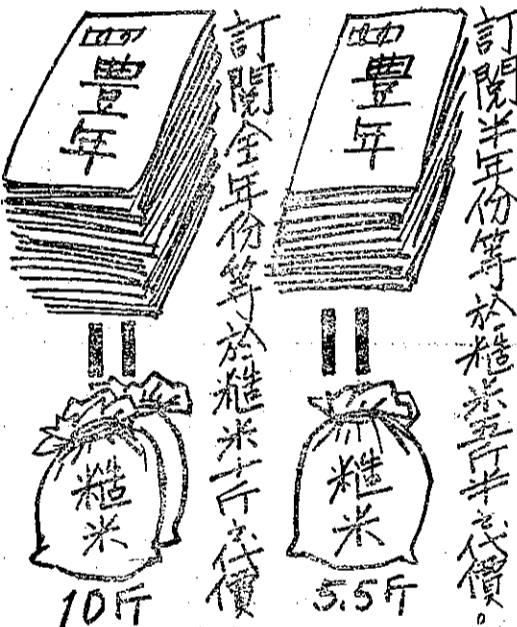 訂閱半年份等於糙米五斤半之代價。
豐年
糙米
5.5斤
訂閱全年份等於糙米十斤之代價
豐年
糙米
10斤